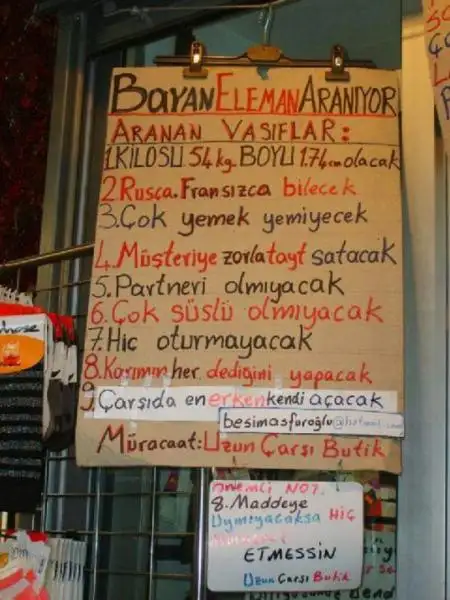 BAYAN ELEMAN ARANIYOR
ARANAN VASIFLAR:
1.KİLOSU 54kg. BOYU 1.74cm olacak
2.Rusça. Fransızca bilecek
3.Çok yemek yemiyecek
4.Müşteriye zorla tayt satacak
5.Partneri olmıyacak
6.Çok süslü olmıyacak
7.Hiç oturmayacak
8.Karımın her dediğini yapacak
9.Çarşıda en erken kendi açacak
besimasfuroğlu@hotmail.com
Müracaat: Uzun Çarşı Butik
ÖNEMLİ NOT.
8.Maddeye
Uymıyacaksa HİÇ
Müracaat
ETMESSİN
Uzun Çarşı Butik